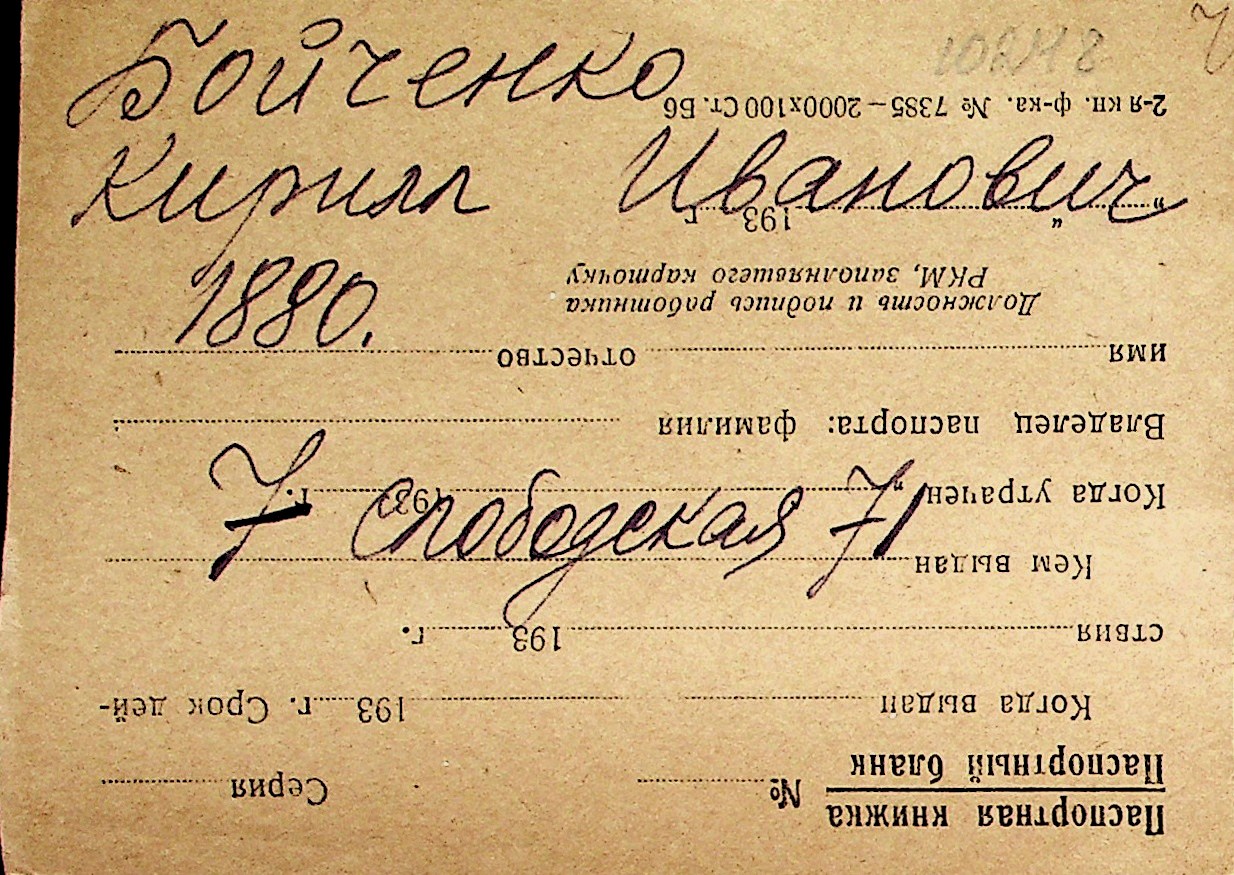 Бойченко
Кирилл Иванович
1880.
7 Слободская 71
10248
Паспортная книжка
Паспортный бланк
№ Серия
Когда выдан 193 г. Срок дей-
ствия 193 г.
Кем выдан
Когда утрачен „ 193 г.
Владелец паспорта: фамилия
имя отчество
Должность и подпись работника
РКМ, заполнявшего карточку
„ “ 193 г.
2-я кн. ф-ка. № 7385–2000х100 Ст. Б6